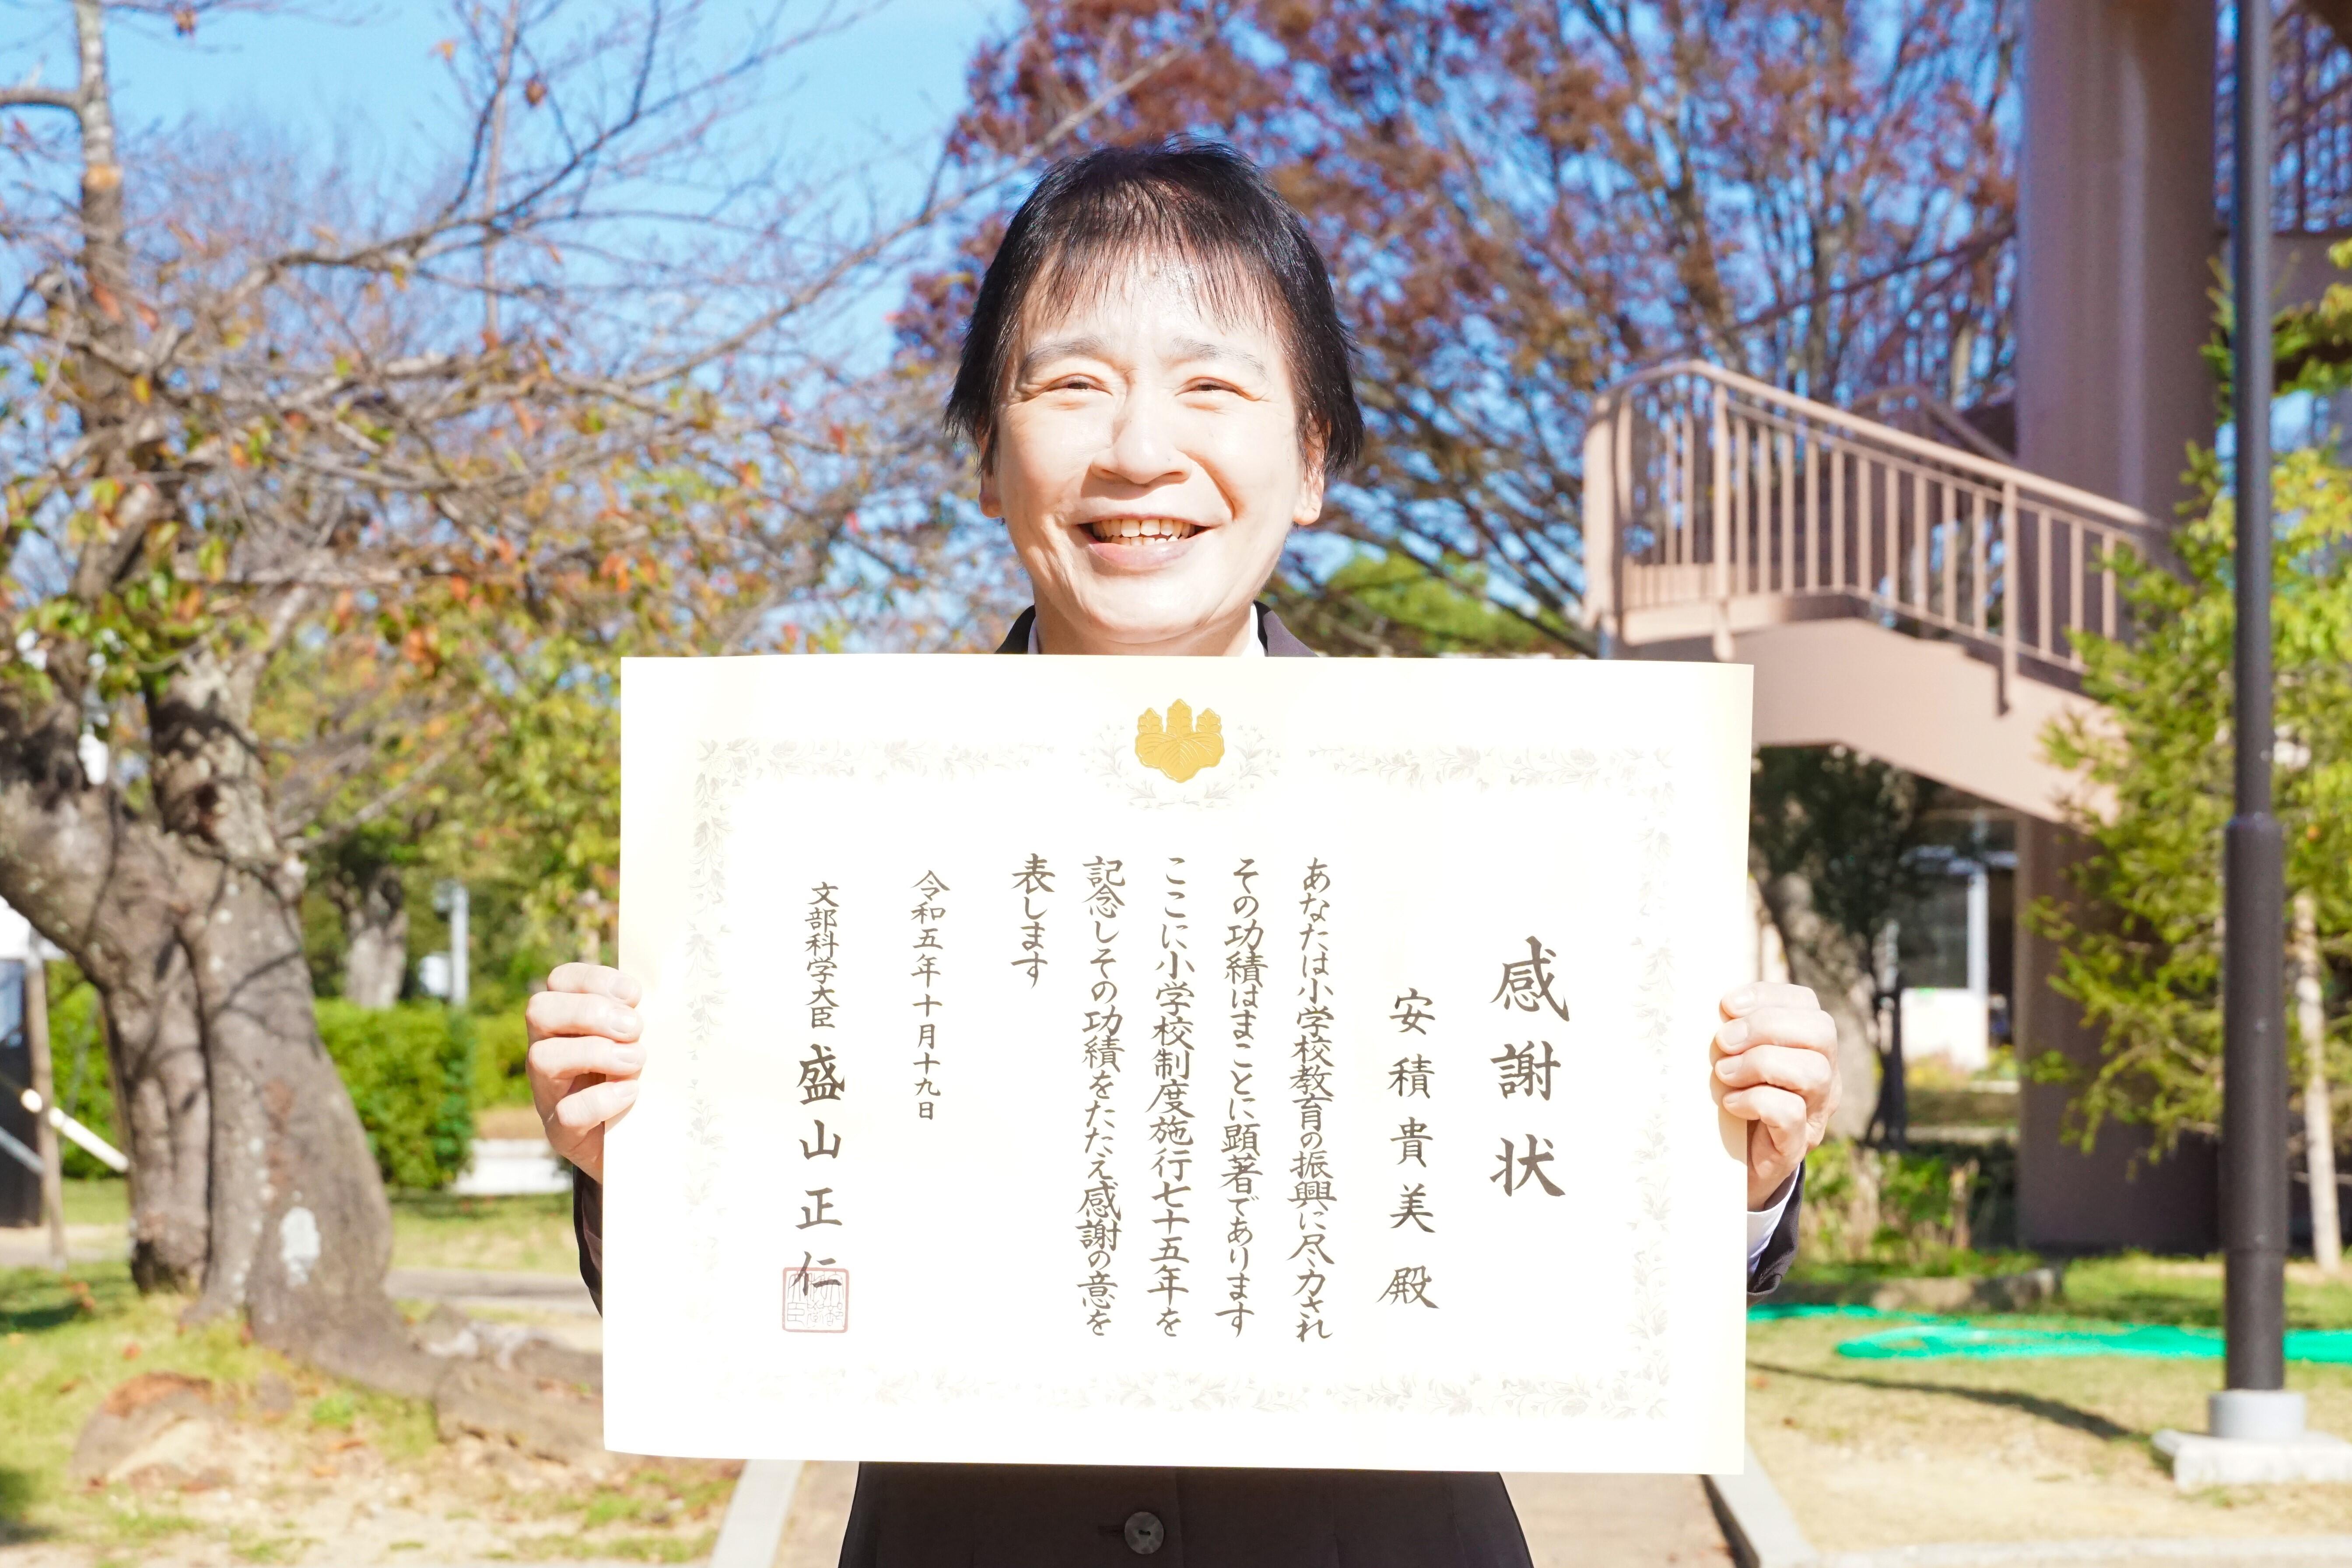 感謝状
安積貴美殿
あなたは小学校教育の振興に尽力され
その功績はまことに顕著であります
ここに小学校制度施行七十五年を
記念しその功績をたたえ感謝の意を
表します
令和五年十月十九日
文部科学大臣 盛山正仁